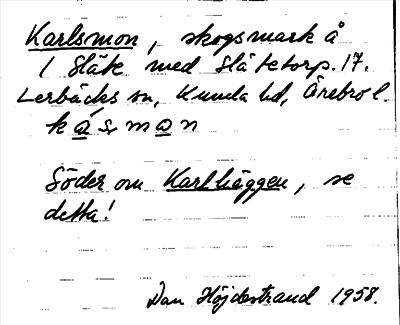 Karlsmon, skogsmark å
1 Slåte med Slåtetorp. 17.
Lerbäcks sn, Kumla hd, Örebro l.
kásman
Söder om Karlhäggen, se
detta!
Dan Höjdestrand 1958.